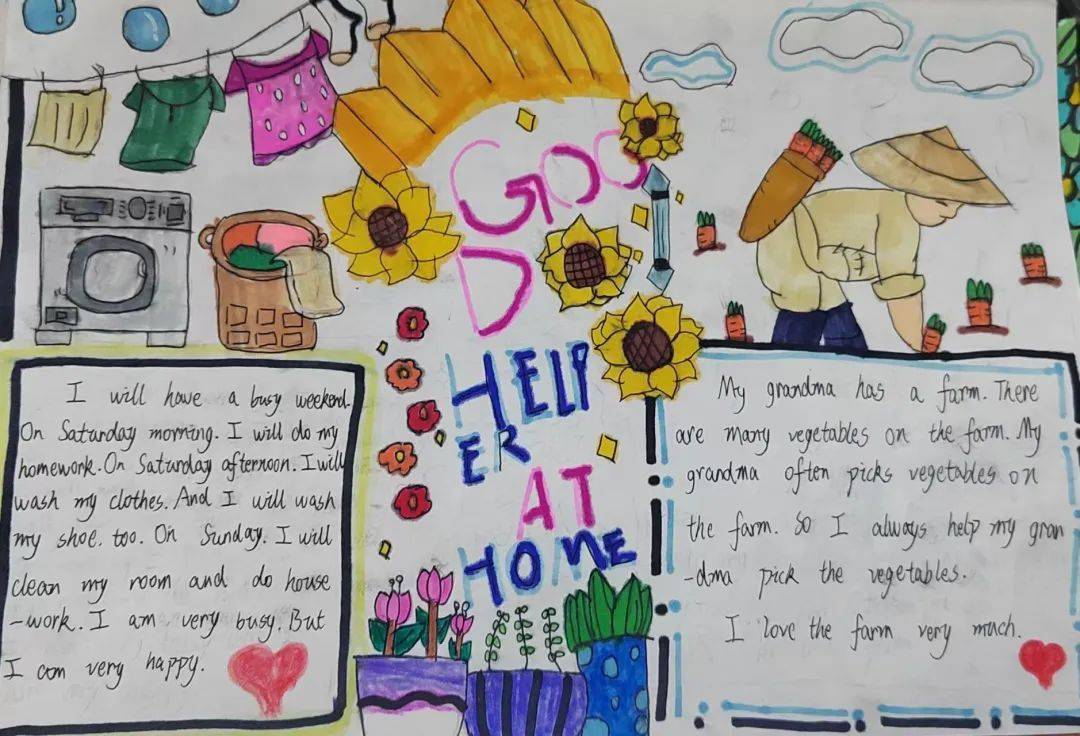 GOO
D
HELP
ER
AT
HOME
I will have a busy weekend.
On Saturday morning. I will do my
homework. On Saturday afternoon. I will
wash my clothes. And I will wash
my shoe. too. On Sunday. I will
clean my room and do house
-work. I am very busy. But
I am very happy.
My grandma has a farm. There
are many vegetables on the farm. My
grandma often picks vegetables on
the farm. So I always help my gran
-dma pick the vegetables.
I love the farm very much.